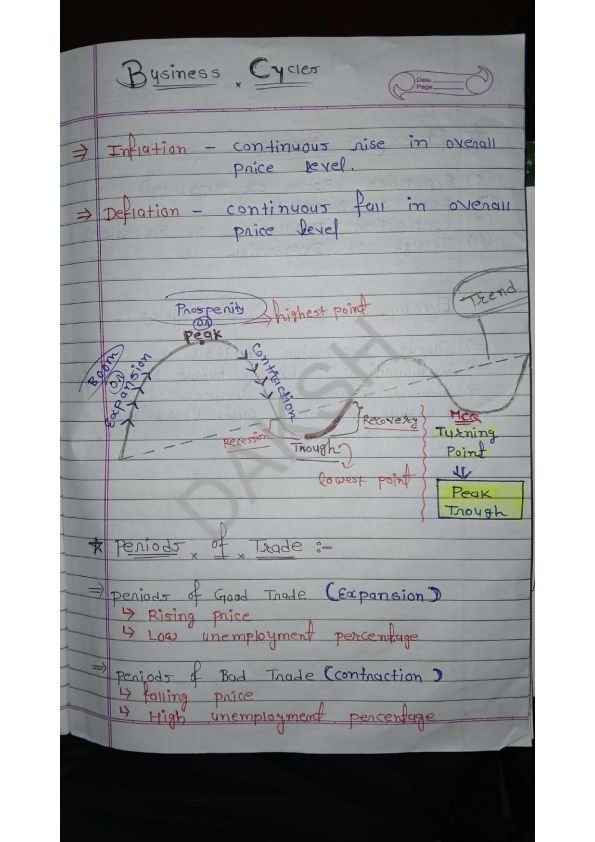 Business × Cycles
Date
Page
⇒ Inflation – continuous rise in overall
price level.
⇒ Deflation – continuous fall in overall
price level
Trend
Prosperity
OR
Peak
→ highest point
Boom
OR
Expansion
Contraction
Recession
Recovery
Trough
lowest point
MCQ
Turning
Point
⇓
Peak
Trough
DAKSH
★ Periods × of × Trade :-
⇒ periods of Good Trade (Expansion)
↳ Rising price
↳ Low unemployment percentage
⇒ periods of Bad Trade (contraction)
↳ falling price
↳ High unemployment percentage.